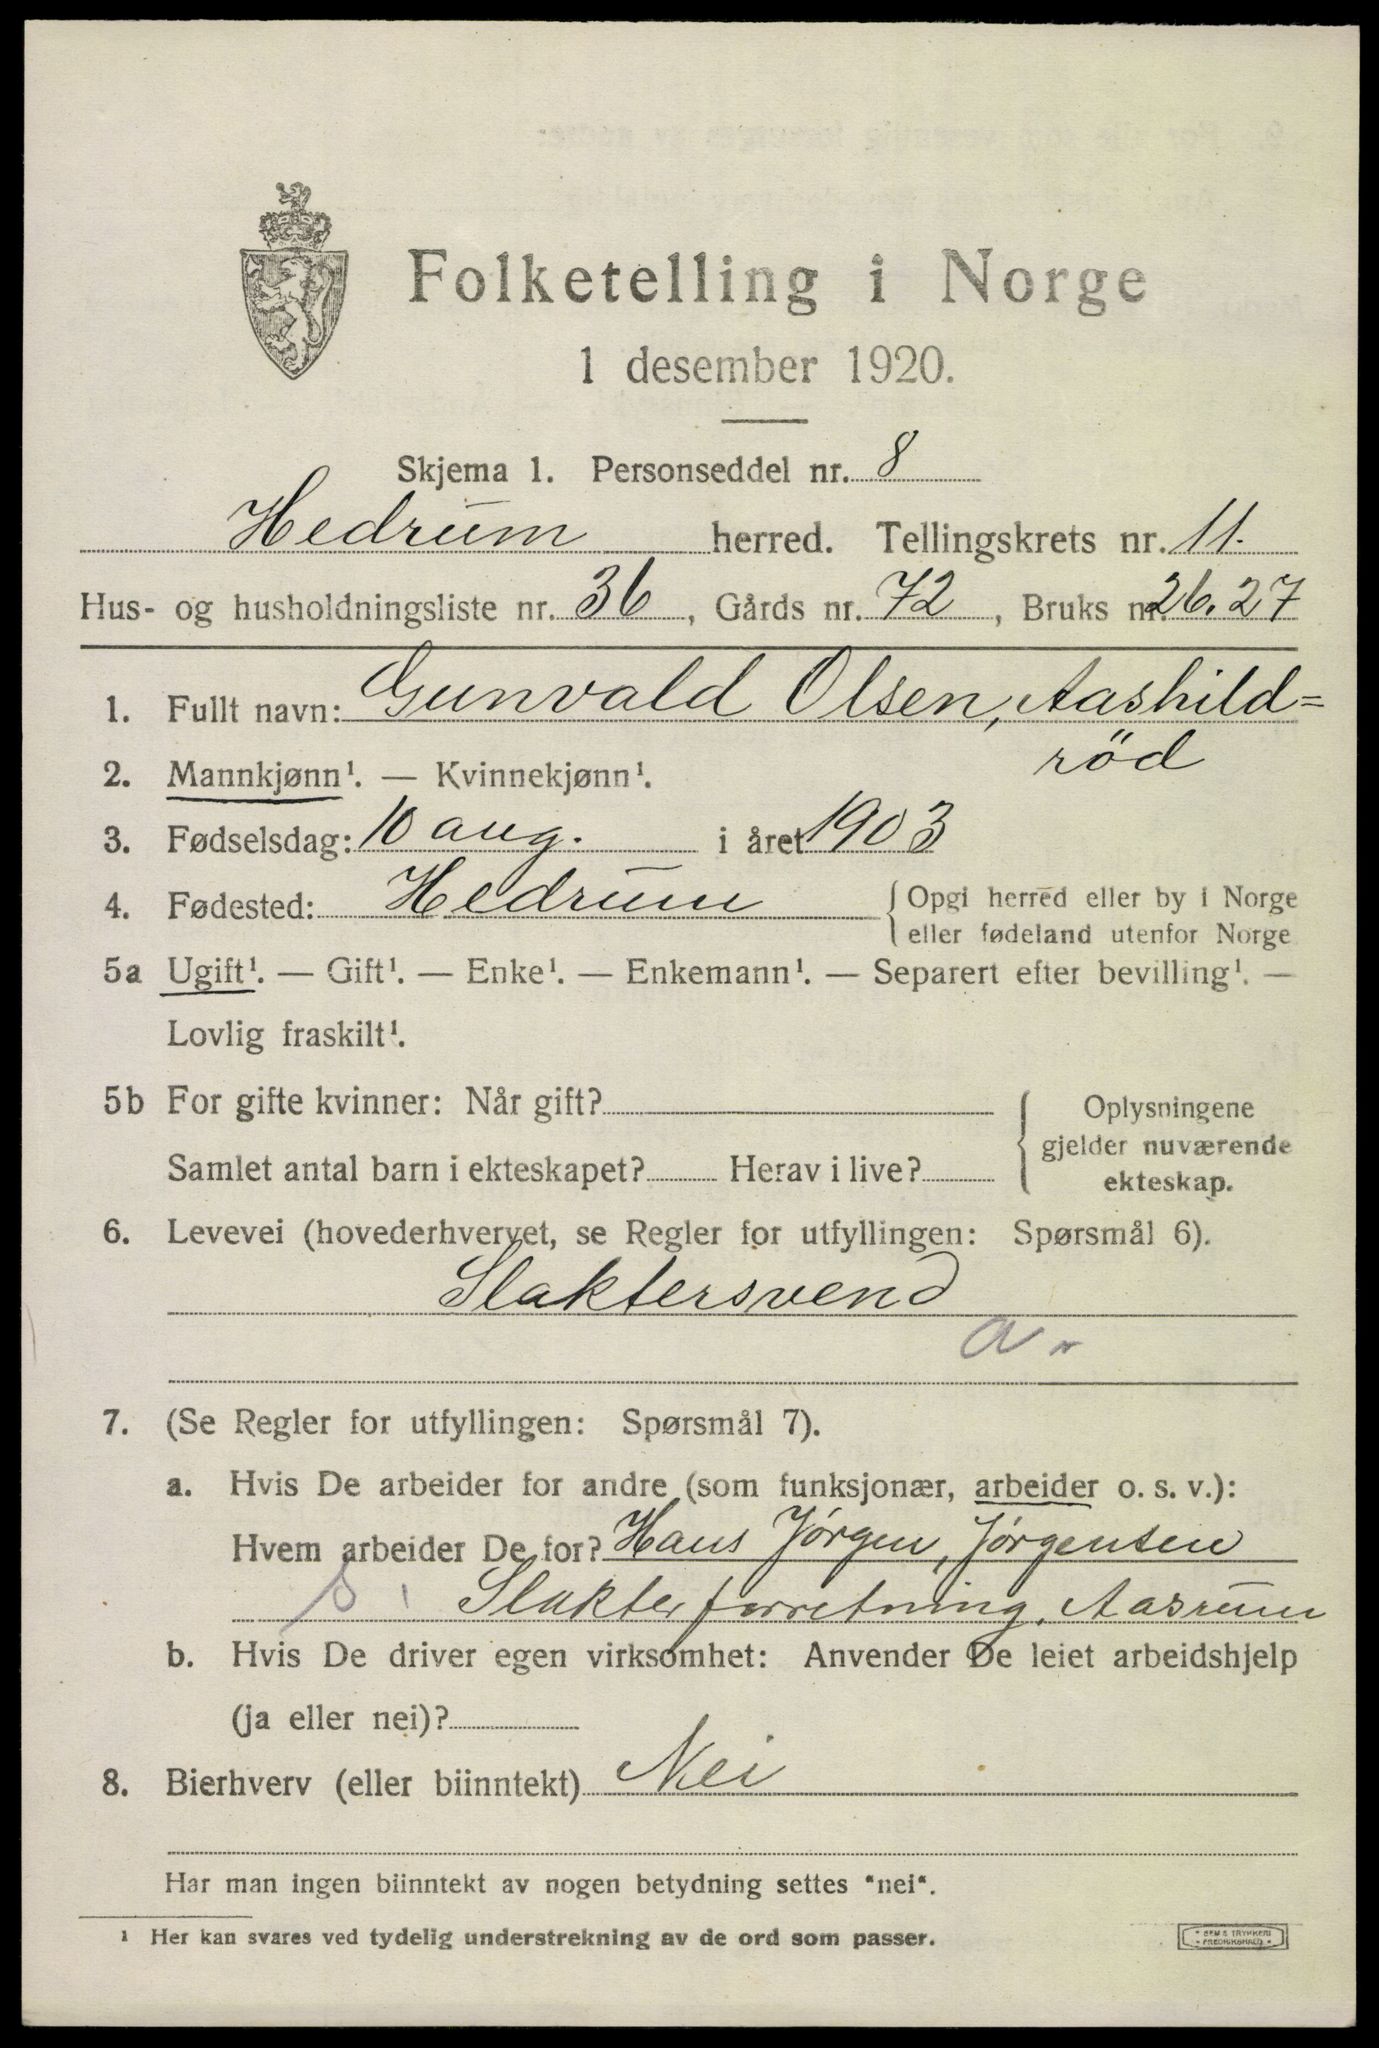 Folketelling i Norge
1 desember 1920.
Skjema 1. Personseddel nr. 8
Hedrum herred. Tellingskrets nr. 11.
Hus- og husholdningsliste nr. 36, Gårds nr. 72, Bruks nr. 26.27
1. Fullt navn: Gunvald Olsen, Aashild=
röd
2. Mannkjønn¹. — Kvinnekjønn¹.
3. Fødselsdag: 10 aug. i året 1903
4. Fødested: Hedrum { Opgi herred eller by i Norge
eller fødeland utenfor Norge
5a Ugift¹. — Gift¹. — Enke¹. — Enkemann¹. — Separert efter bevilling¹. —
Lovlig fraskilt¹.
5b For gifte kvinner: Når gift? { Oplysningene
gjelder nuværende
Samlet antal barn i ekteskapet? Herav i live? ekteskap.
6. Levevei (hovederhvervet, se Regler for utfyllingen: Spørsmål 6).
Slaktersvend
a "
7. (Se Regler for utfyllingen: Spørsmål 7).
a. Hvis De arbeider for andre (som funksjonær, arbeider o. s. v.):
Hvem arbeider De for? Hans Jørgen, Jørgensen
Slakterforretning, Aasrum
b. Hvis De driver egen virksomhet: Anvender De leiet arbeidshjelp
(ja eller nei)?
8. Bierhverv (eller biinntekt) Nei
Har man ingen biinntekt av nogen betydning settes "nei".
¹ Her kan svares ved tydelig understrekning av de ord som passer.
SEM & TRYKKERI
FREDRIKSHALD